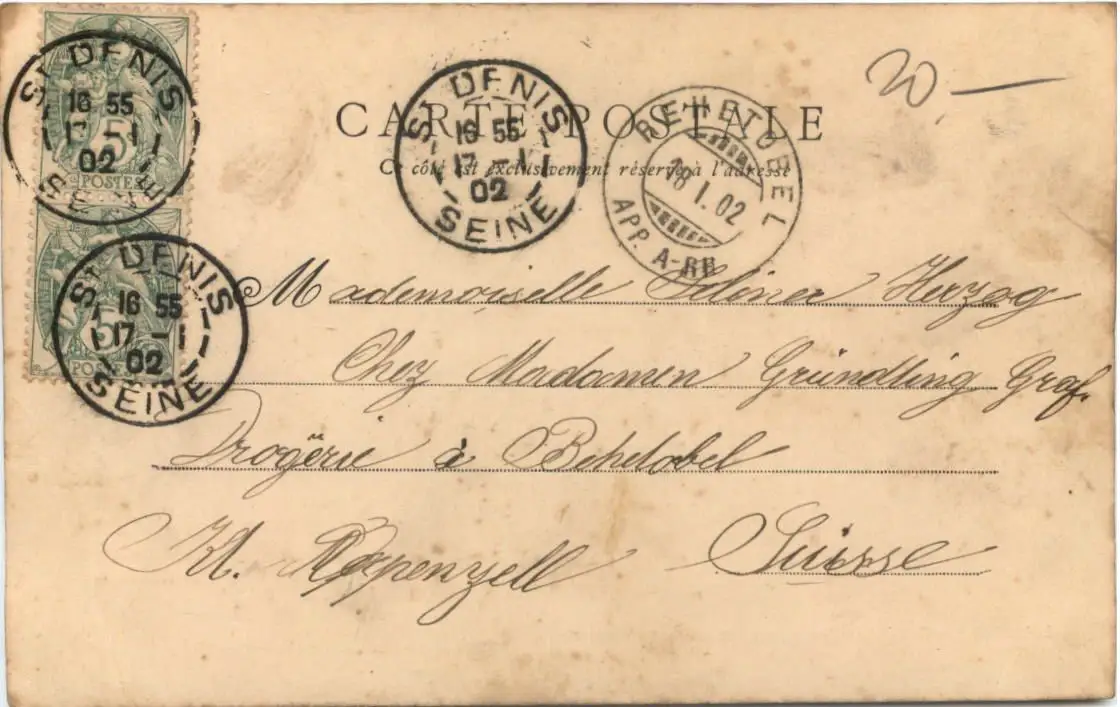 CARTE POSTALE
Ce côté est exclusivement réservé à l'adresse
20 —
5
POSTES
5
POSTES
ST DENIS
16 55
17 - 1
02
SEINE
ST DENIS
16 55
17 - 1
02
SEINE
ST DENIS
16 55
17 - 1
02
SEINE
REHETOBEL
18. I. 02
APP. A-RH
Mademoiselle Herzog
Chez Madamen Gründling Graf.
Drogërie à Behetobel
Kt. Appenzell Suisse